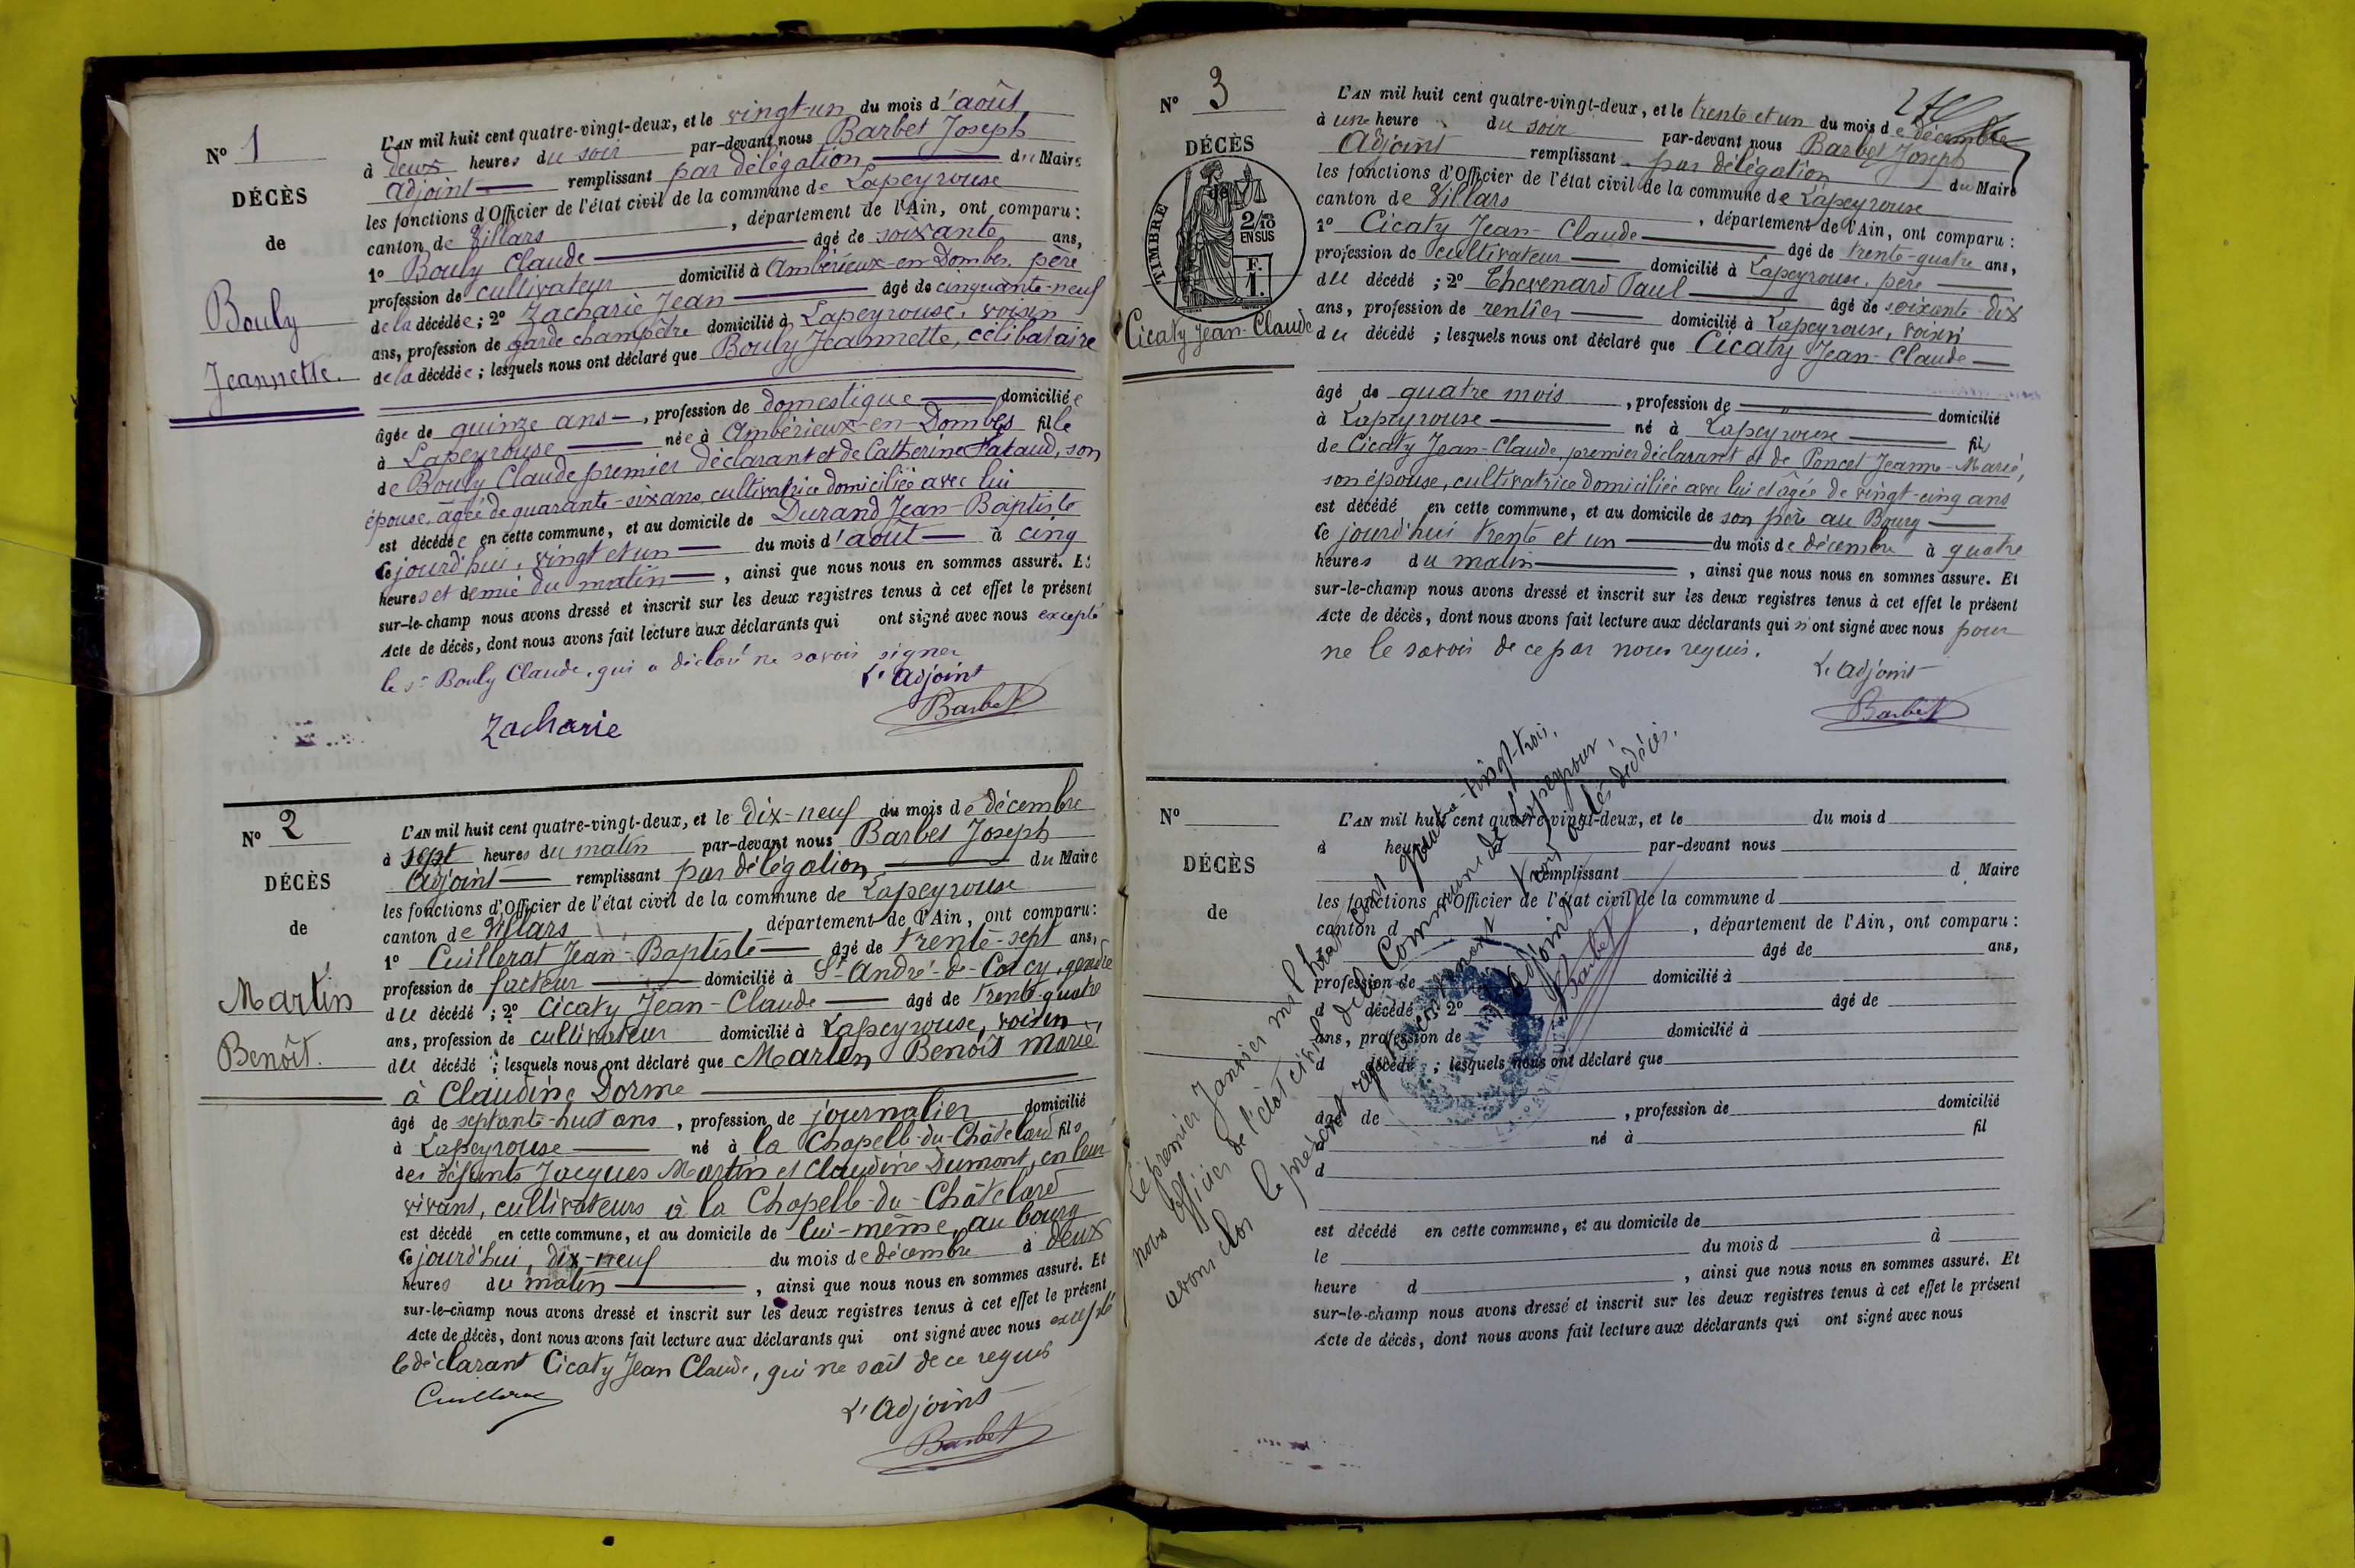 N° 1
DÉCÈS
de
Bouly
Jeannette.
L'AN mil huit cent quatre-vingt-deux, et le vingt-un du mois d'août
à deux heures du soir par-devant nous Barbet Joseph
Adjoint remplissant par délégation du Maire
les fonctions d'Officier de l'état civil de la commune de Lapeyrouse
canton de Villars, département de l'Ain, ont comparu :
1° Bouly Claude âgé de soixante ans,
profession de cultivateur domicilié à Ambérieux-en-Dombes, père
de la décédée ; 2° Zacharie Jean âgé de cinquante-neuf
ans, profession de garde champêtre domicilié à Lapeyrouse, voisin
de la décédée ; lesquels nous ont déclaré que Bouly Jeannette, célibataire
âgée de quinze ans, profession de domestique domiciliée
à Lapeyrouse née à Ambérieux-en-Dombes fille
de Bouly Claude premier déclarant et de Catherine Pataud, son
épouse, âgée de quarante-six ans, cultivatrice domiciliée avec lui
est décédée en cette commune, et au domicile de Durand Jean-Baptiste
Ce jourd'hui, vingt et un du mois d'août à cinq
heures et demie du matin, ainsi que nous nous en sommes assuré. Et
sur-le-champ nous avons dressé et inscrit sur les deux registres tenus à cet effet le présent
Acte de décès, dont nous avons fait lecture aux déclarants qui ont signé avec nous excepté
le sr Bouly Claude, qui a déclaré ne savoir signer
L'Adjoint
Zacharie
Barbet
N° 2
DÉCÈS
de
Martin
Benoît.
L'AN mil huit cent quatre-vingt-deux, et le dix-neuf du mois de décembre
à sept heures du matin par-devant nous Barbet Joseph
Adjoint remplissant par délégation du Maire
les fonctions d'Officier de l'état civil de la commune de Lapeyrouse
canton de Villars, département de l'Ain, ont comparu :
1° Cuillerat Jean-Baptiste âgé de trente-sept ans,
profession de facteur domicilié à St André-de-Corcy, gendre
du décédé ; 2° Cicaty Jean-Claude âgé de trente-quatre
ans, profession de cultivateur domicilié à Lapeyrouse, voisin
du décédé ; lesquels nous ont déclaré que Martin Benoît marié
à Claudine Dorme
âgé de septante-huit ans, profession de journalier domicilié
à Lapeyrouse né à la Chapelle-du-Châtelard fils
des défunts Jacques Martin et Claudine Dumont, en leur
vivant, cultivateurs à la Chapelle-du-Châtelard
est décédé en cette commune, et au domicile de lui-même, au bourg
Ce jourd'hui, dix-neuf du mois de décembre à deux
heures du matin, ainsi que nous nous en sommes assuré. Et
sur-le-champ nous avons dressé et inscrit sur les deux registres tenus à cet effet le présent
Acte de décès, dont nous avons fait lecture aux déclarants qui ont signé avec nous excepté
le déclarant Cicaty Jean Claude, qui ne sait de ce requis
Cuillerat
L'Adjoint
Barbet
N° 3
DÉCÈS
de
TIMBRE
2/10 EN SUS
F. 1.
Cicaty Jean-Claude
L'AN mil huit cent quatre-vingt-deux, et le trente et un du mois de décembre
à une heure du soir par-devant nous Barbet Joseph
Adjoint remplissant par délégation du Maire
les fonctions d'Officier de l'état civil de la commune de Lapeyrouse
canton de Villars, département de l'Ain, ont comparu :
1° Cicaty Jean-Claude âgé de trente-quatre ans,
profession de cultivateur domicilié à Lapeyrouse, père
du décédé ; 2° Thevenard Paul âgé de soixante-dix
ans, profession de rentier domicilié à Lapeyrouse, voisin
du décédé ; lesquels nous ont déclaré que Cicaty Jean-Claude
âgé de quatre mois, profession de " domicilié
à Lapeyrouse né à Lapeyrouse fils
de Cicaty Jean-Claude, premier déclarant et de Poncet Jeanne-Marie,
son épouse, cultivatrice domiciliée avec lui et âgée de vingt-cinq ans
est décédé en cette commune, et au domicile de son père au Bourg
Ce jourd'hui trente et un du mois de décembre à quatre
heures du matin, ainsi que nous nous en sommes assuré. Et
sur-le-champ nous avons dressé et inscrit sur les deux registres tenus à cet effet le présent
Acte de décès, dont nous avons fait lecture aux déclarants qui n'ont signé avec nous pour
ne le savoir de ce par nous requis.
L'Adjoint
Barbet
N°
DÉCÈS
de
L'AN mil huit cent quatre-vingt-deux, et le du mois d
à heure par-devant nous
remplissant d Maire
les fonctions d'Officier de l'état civil de la commune d
canton d , département de l'Ain, ont comparu :
1° âgé de ans,
profession de domicilié à
d décédé ; 2° âgé de
ans, profession de domicilié à
d décédé ; lesquels nous ont déclaré que
âgé de , profession de domicilié
à né à fil
d
est décédé en cette commune, et au domicile de
le du mois d à
heure d , ainsi que nous nous en sommes assuré. Et
sur-le-champ nous avons dressé et inscrit sur les deux registres tenus à cet effet le présent
Acte de décès, dont nous avons fait lecture aux déclarants qui ont signé avec nous
Le premier Janvier mil huit cent quatre-vingt-trois,
nous Officier de l'état civil de la Commune de Lapeyrouse,
avons clos le présent registre contenant trois actes de décès.
L'Adjoint
Barbet